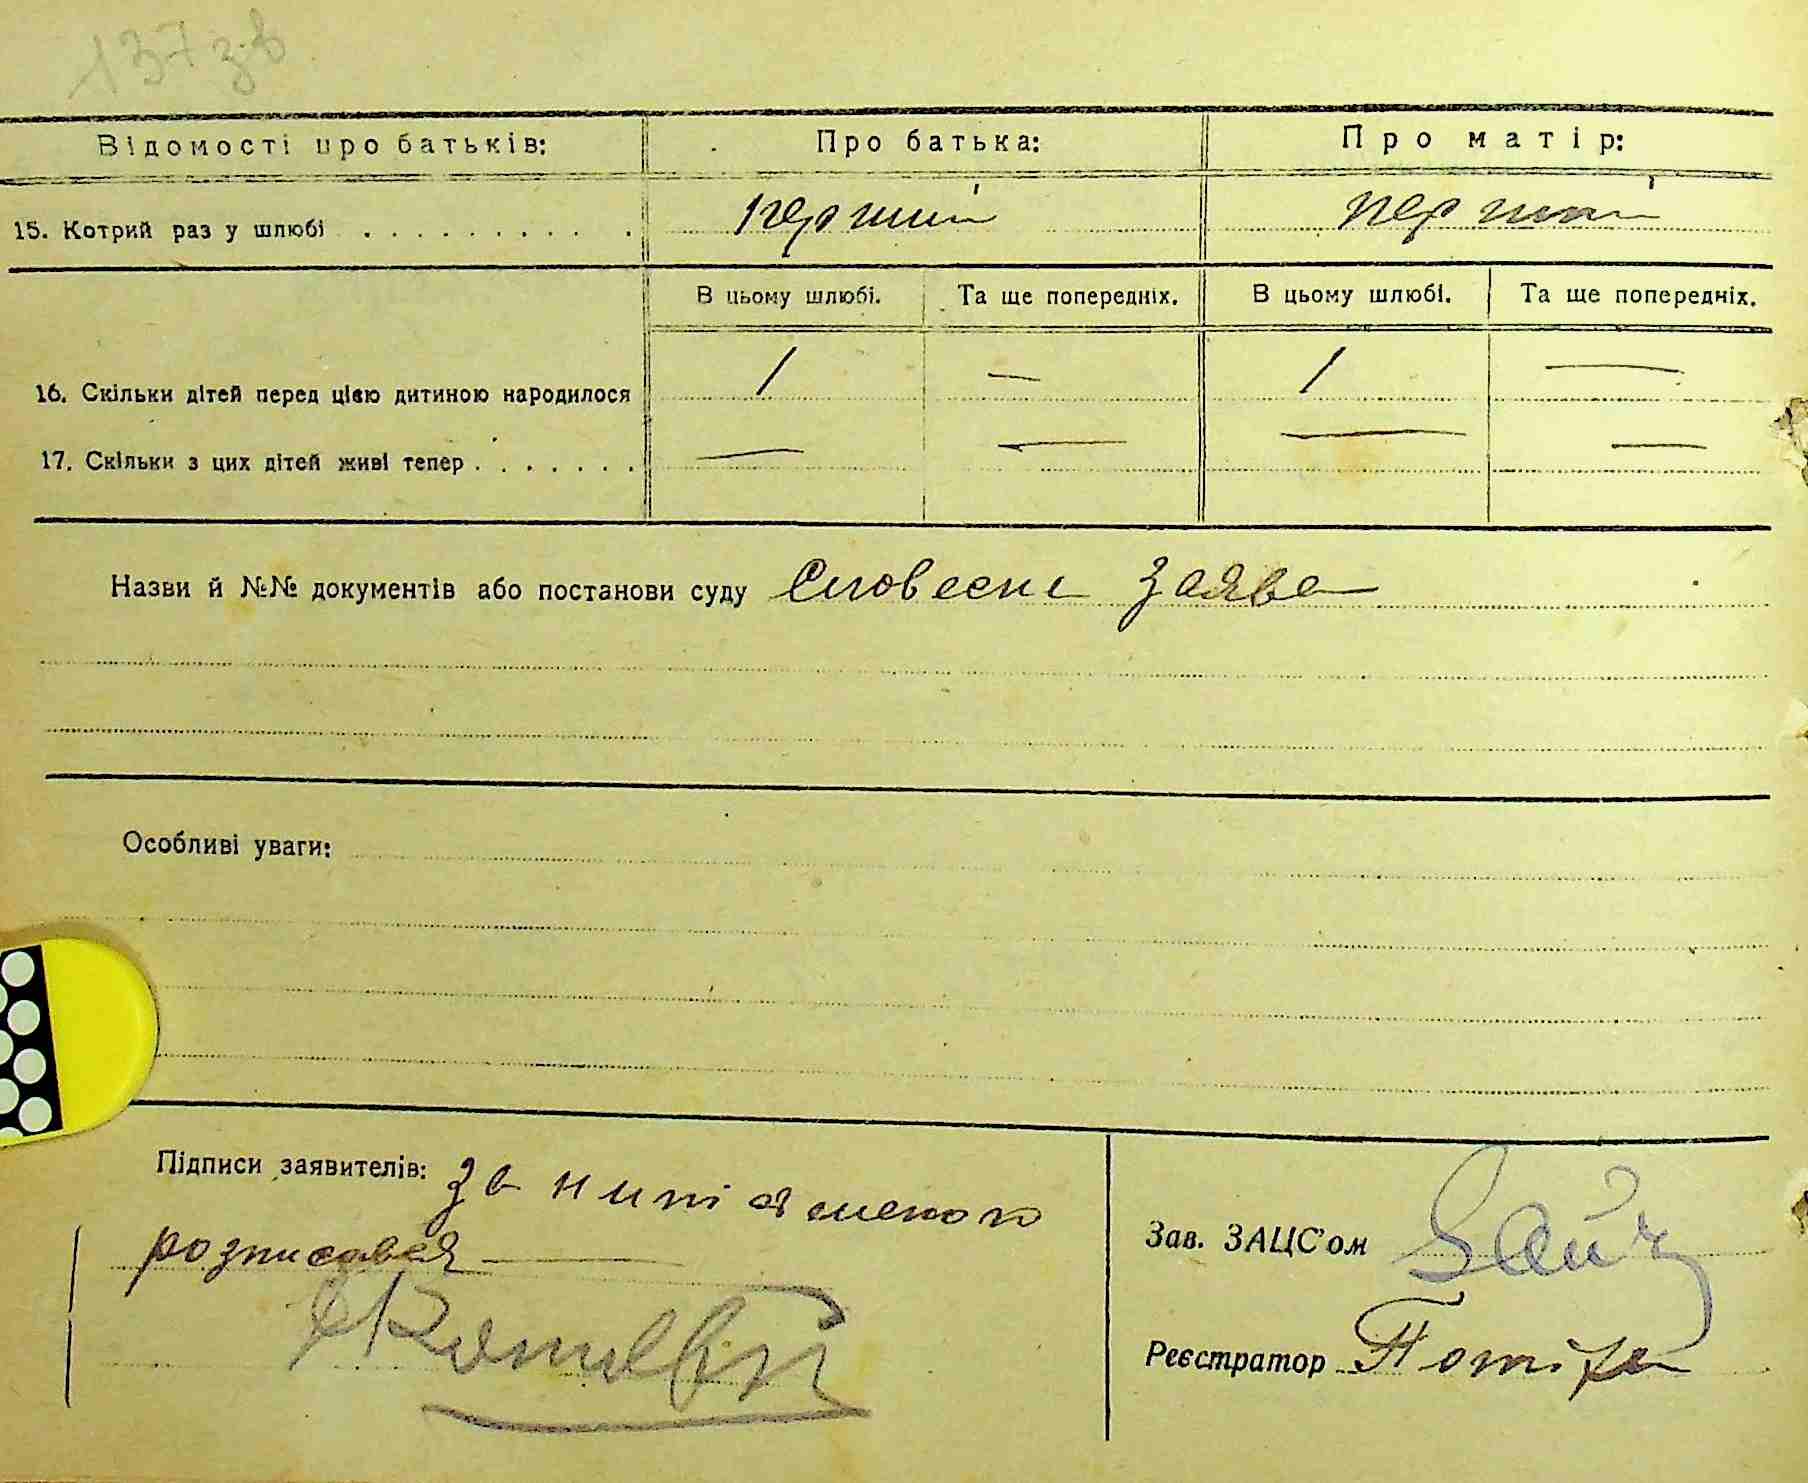 137 зв
Відомості про батьків: Про батька: Про матір:
15. Котрий раз у шлюбі . . . . . . . . . . перший перший
В цьому шлюбі. Та ще попередніх. В цьому шлюбі. Та ще попередніх.
16. Скільки дітей перед цією дитиною народилося 1 — 1 —
17. Скільки з цих дітей живі тепер . . . . . . . — — — —
Назви й №№ документів або постанови суду Словесне заява
Особливі уваги:
Підписи заявителів: за
розписався
Зав. ЗАЦС'ом
Реєстратор